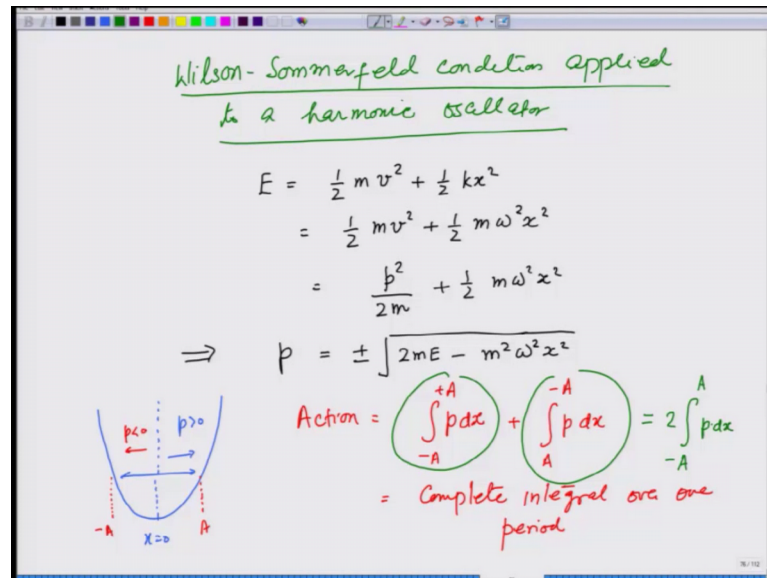 Wilson-Sommerfeld condition applied
to a harmonic oscillator
E = 1/2 m v² + 1/2 kx²
= 1/2 mv² + 1/2 mω²x²
= p²/2m + 1/2 mω²x²
⇒ p = ± √(2mE − m²ω²x²)
Action = ∫_{-A}^{+A} pdx + ∫_{A}^{-A} p dx = 2 ∫_{-A}^{A} p·dx
= Complete integral over one
period
p<0 p>0
-A x=0 A